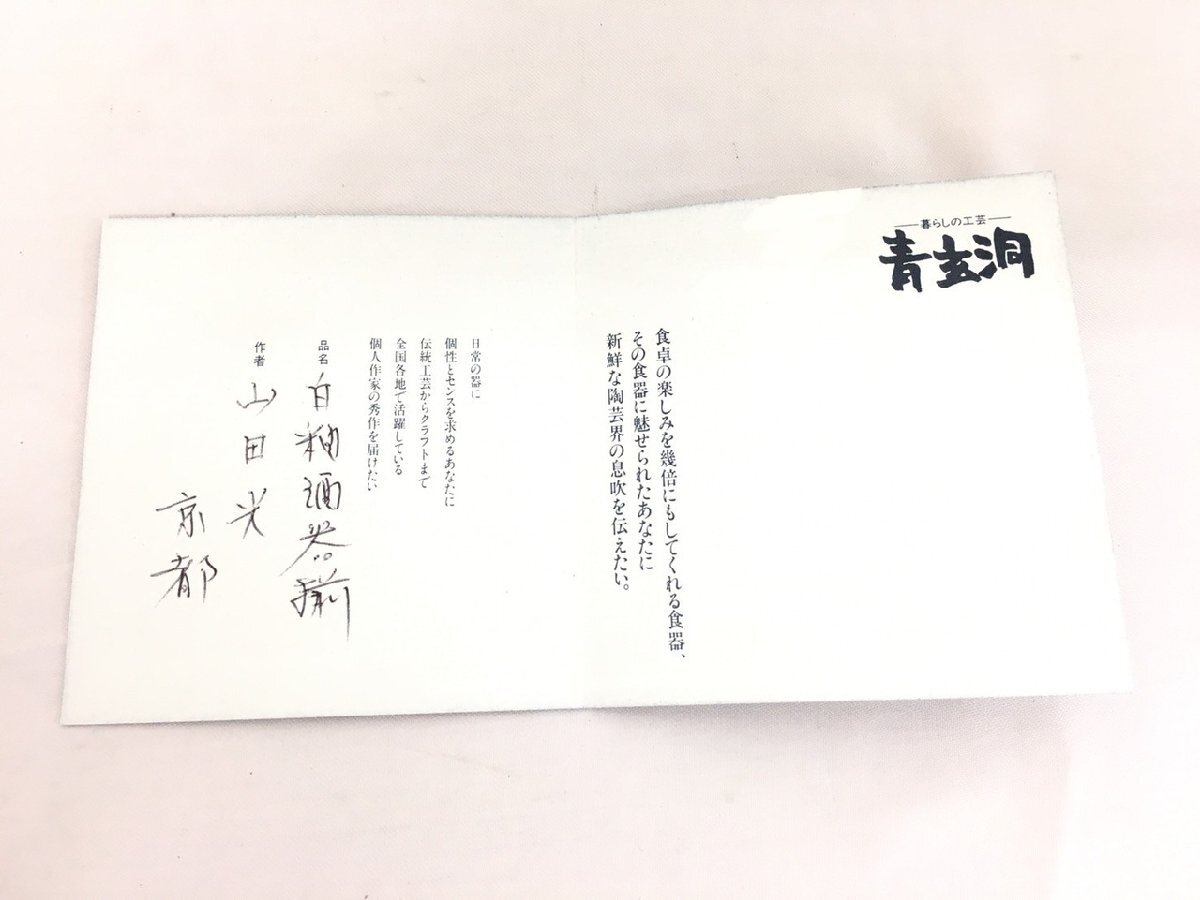 暮らしの工芸
青玄洞
食卓の楽しみを幾倍にもしてくれる食器、
その食器に魅せられたあなたに
新鮮な陶芸界の息吹を伝えたい。
日常の器に
個性とセンスを求めるあなたに
伝統工芸からクラフトまで
全国各地で活躍している
個人作家の秀作を届けたい
品名 白釉酒器揃
作者 山田光
京都